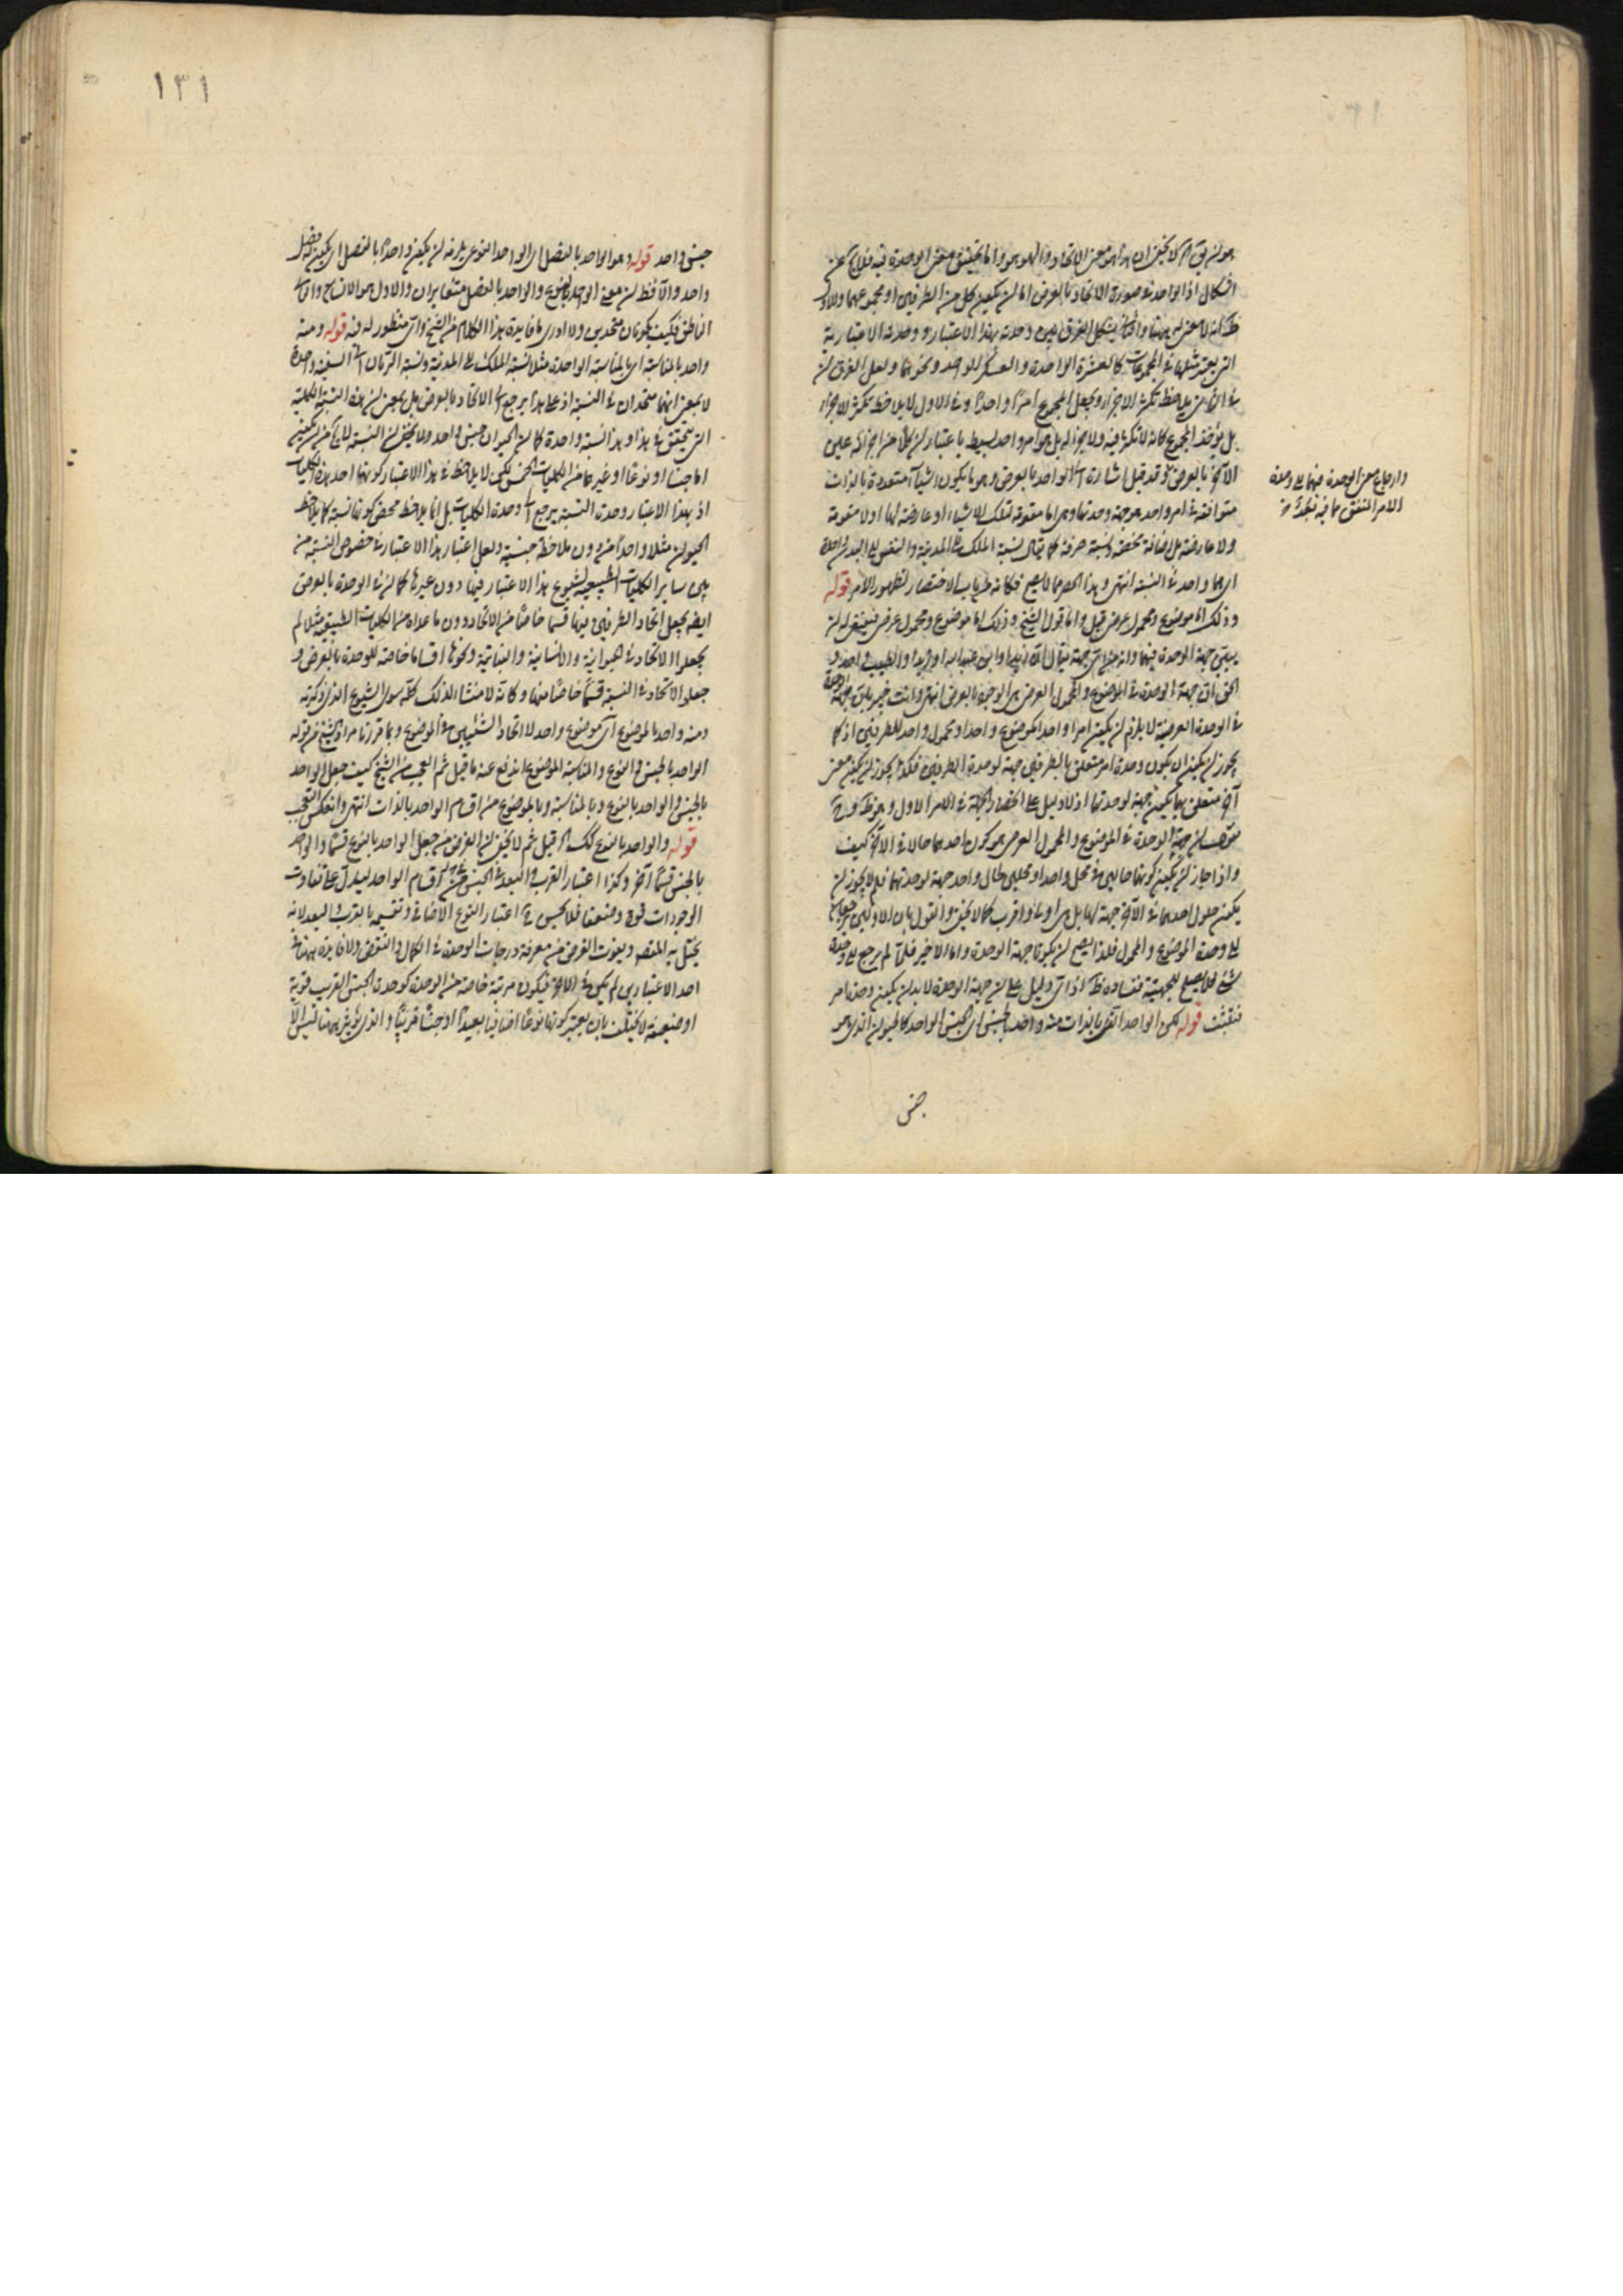 هو لا يخفى ان هذا هو معنى الاتحاد والهوهو وانما تحقيق معنى الوحدة فيه فلا يخ عن
اشكال اذ الواحد في صورة الاتحاد بالعرض اما ان يكون كل من الطرفين او مجموعهما والاول
انه لا معنى له ههنا والثانى يشكل الفرق بين وحدته بهذا الاعتبار ووحدته الاعتبارية
التى يعتبر مثلها في المجموعات كالعشرة الواحدة والعسكر الواحد ونحوهما ولعل الفرق ان
في الثانى يلاحظ تكثر الاجزاء ويجعل المجموع امرا واحدا وفي الاول لا يلاحظ تكثر الاجزاء
بل يؤخذ المجموع كانه لا تكثر فيه ولا جزء له بل هو امر واحد بسيط باعتبار ان كلا من اجزائه عين
الآخر بالعرض وقد قيل اشارة الى الواحد بالعرض وهو ما يكون اشياء متعددة بالذات
متوافقة في امر واحد هو جهة وحدتها وهى اما مقومة لتلك الاشياء او عارضة لها او لا مقومة
ولا عارضة بل اضافة محضة ونسبة صرفة كما يقال نسبة الملك الى المدينة والنفس الى البدن واحدة
اى هما واحد في النسبة انتهى وهذا الحصر مما لا يصح فكانه من باب الاختصار لظهور الامر قوله
وذلك اما موضوع ومحمول عرضى قيل واما قول الشيخ وذلك اما موضوع ومحمول عرضى فينبغى له ان
يبين جهة الوحدة فيهما وانه من اى جهة يقال ان زيدا وابن عبد الله او زيدا والطبيب واحد و
الحق ان جهة الوحدة في الموضوع والمحمول العرضى هى الوجود بالعرض انتهى وانت خبير بان جهة الوحدة
في الوحدة العرضية لا يلزم ان يكون امرا واحدا كموضوع واحد او محمول واحد للطرفين اذ كما
يجوز ان يكون وحدة امر متعلق بالطرفين جهة لوحدة الطرفين فكذا يجوز ان يكون معنى
آخر متعلق بهما يكون جهة لوحدتهما اذ لا دليل على انحصار الجهة في الامر الاول وهو ظ وح
نقول ان جهة الوحدة في الموضوع والمحمول العرضى هو كون احدهما حالا في الآخر كيف
واذا جاز ان يكون كونهما حالين في محل واحد او محلين لحال واحد جهة لوحدتهما فلم لا يجوز ان
يكون حلول احدهما في الآخر جهة لها بل هى اولى واقرب كما لا يخفى والقول بان الاولين يرجعان
الى وحدة الموضوع والمحمول فلذا يصح ان يكونا جهة الوحدة واما الاخير فلما لم يرجع الى وحدة
شئ فلا يصلح للجهتية ففساده ظ اذ اى دليل على ان جهة الوحدة لا بد ان يكون وحدة امر
فتثبت قوله لكن الواحد الذى بالذات منه واحد بالجنس اى الجنس الواحد كالحيوان الذى هو
جنس
وارجاع معنى الوحدة فيهما الى وحدة
الامر المتفق مما فيه تكلف منه
١٣١
جنس واحد قوله وهو الواحد بالفصل اى الواحد النوعى يلزمه ان يكون واحدا بالفصل اى يكون له فصل
واحد والا فظ ان معنى الواحد بالنوع والواحد بالفصل متغايران والاول هو الانسان والثانى
الناطق فكيف يكونان متحدين ولا ادرى ما فايدة هذا الكلام من الشيخ واى منظور له فيه قوله ومنه
واحد بالمناسبة اى بالمناسبة الواحدة مثلا نسبة الملك الى المدينة ونسبة الربان الى السفينة واحدة
لا بمعنى انهما متحدان في النسبة اذ على هذا يرجع الى الاتحاد بالعرض بل بمعنى ان هذه النسبة الكلية
التى يتحقق في هذا وهذا نسبة واحدة كما ان الحيوان جنس واحد ولا يخفى ان النسبة لا يخ من ان يكون
اما جنسا او نوعا او غيرهما من الكليات الخمس لكن لا يلاحظ في هذا الاعتبار كونها احد هذه الكليات
اذ بهذا الاعتبار وحدة النسبة يرجع الى وحدة الكليات بل انما يلاحظ محض كونها نسبة كما يلاحظ
الحيوان مثلا واحدا من دون ملاحظة جنسية ولعل اعتبار هذا الاعتبار في خصوص النسبة من
بين ساير الكليات الطبيعية لشيوع هذا الاعتبار فيها دون غيرها كما ان في الوحدة بالعرض
ايضا يجعل اتحاد الطرفين فيها قسما خاصا من الاتحاد دون ما عداه من الكليات الطبيعية مثلا لم
يجعلوا الاتحاد في الحيوانية والانسانية والنباتية ونحوها اقساما خاصة للوحدة بالعرض و
جعلوا الاتحاد في النسبة قسما خاصا منها وكانه لا منشأ لذلك كله سوى الشيوع الذى ذكرنه
ومنه واحد بالموضوع اى موضوع واحد لا اتحاد الشيئين في الموضوع وبما قررنا مراد الشيخ من قوله
الواحد بالجنس والنوع والمناسبة الموضوع اندفع عنه ما قيل ثم العجب من الشيخ كيف جعل الواحد
بالجنس والواحد بالنوع وبالمناسبة وبالموضوع من اقسام الواحد بالذات انتهى وانعكس التعجب
قوله والواحد بالنوع كك الخ قيل ثم لا يخفى ان الغرض من جعل الواحد بالنوع قسما والواحد
بالجنس قسما آخر وكذا اعتبار القرب والبعد في الجنس من اقسام الواحد ليدل على تفاوت
الوحدات قوة وضعفا فلا يحسن ح اعتبار النوع الاضافى وتقسيمه بالقرب والبعد لانه
يختل به المقصود ويفوت الغرض من معرفة درجات الوحدة في الكمال والنقص ولا فايدة ههنا في
احد الاعتبارين لم يكن في الآخر فيكون مرتبة خاصة من الوحدة كوحدة الجنس القريب قوية
او ضعيفة لا يختلف بان يعتبر كونها نوعا اضافيا بعيدا او جنسا قريبا والذى يؤثر ههنا ليس الا